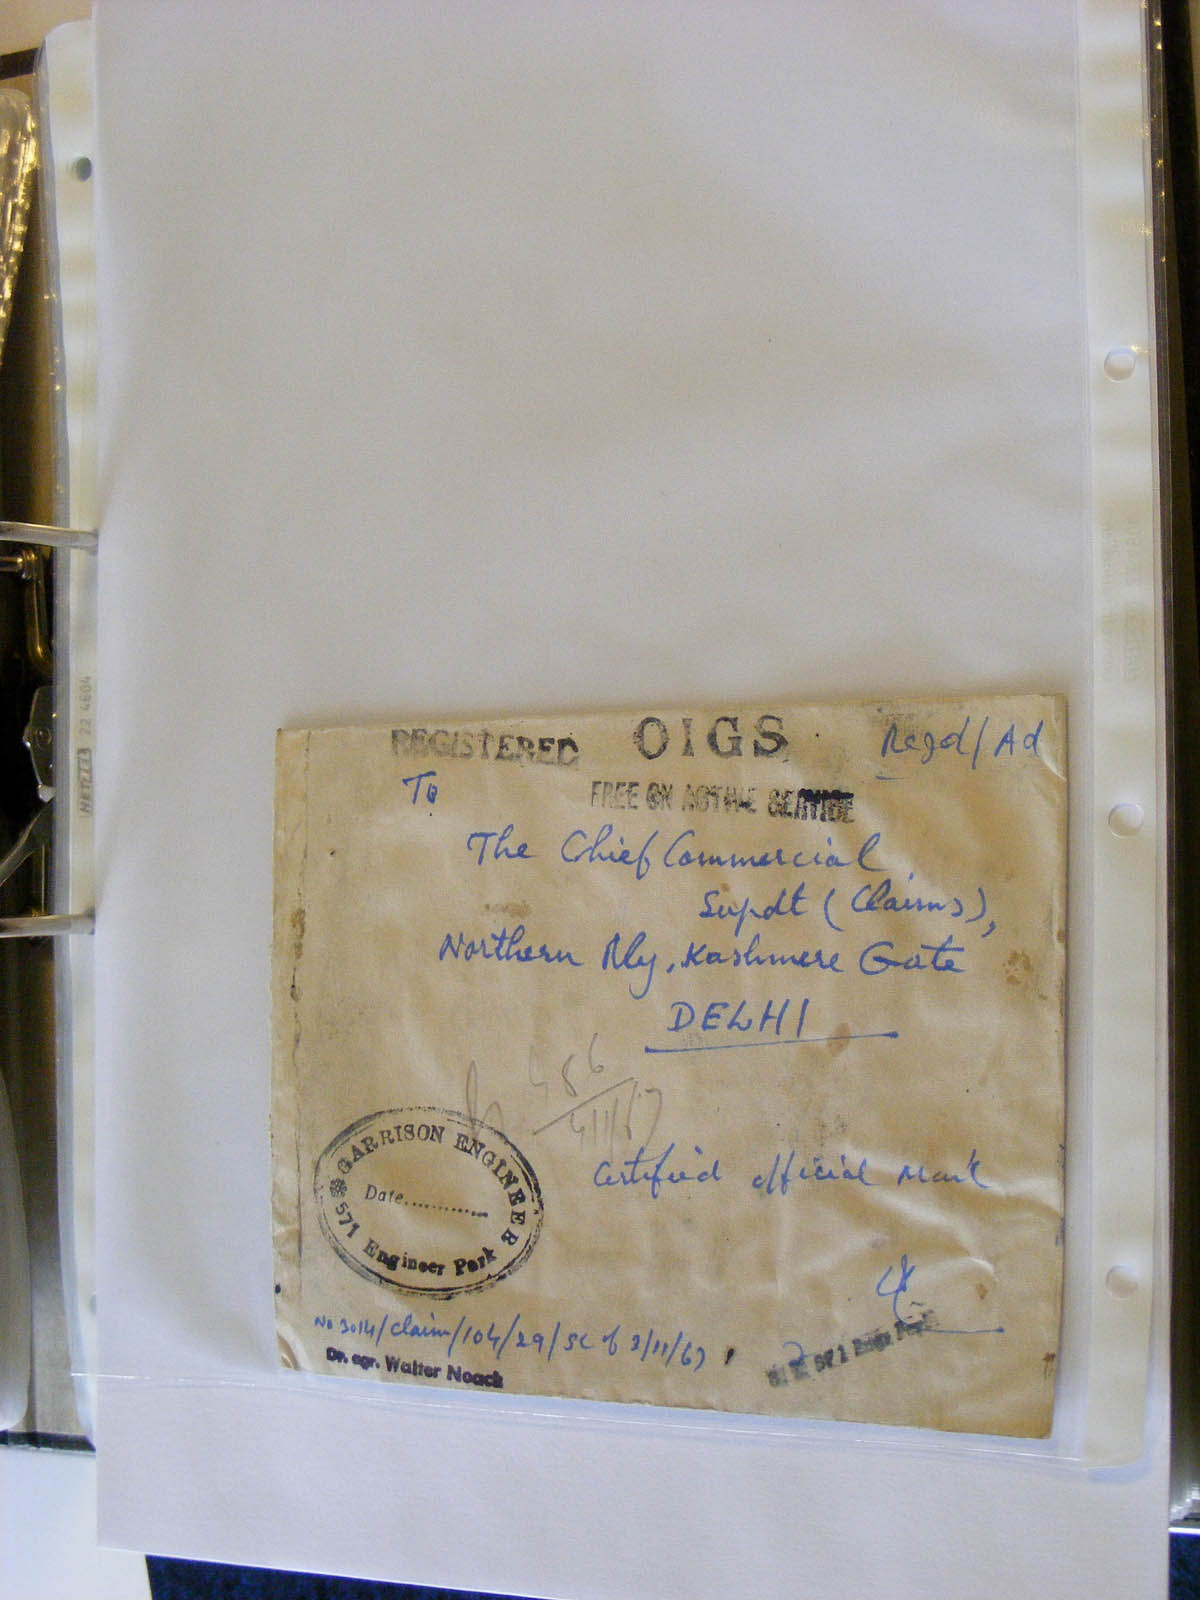 REGISTERED OIGS Regd/Ad
FREE ON ACTIVE SERVICE
To
The Chief Commercial
Supdt (Claims),
Northern Rly, Kashmere Gate
DELHI
456
4/11/67
GARRISON ENGINEER
Date............
571 Engineer Park
Certified official Mark
No 3014/Claim/104/29/SC of 3/11/67
Dr. agr. Walter Noack
571 Engr Park
HETZEL 22 4604